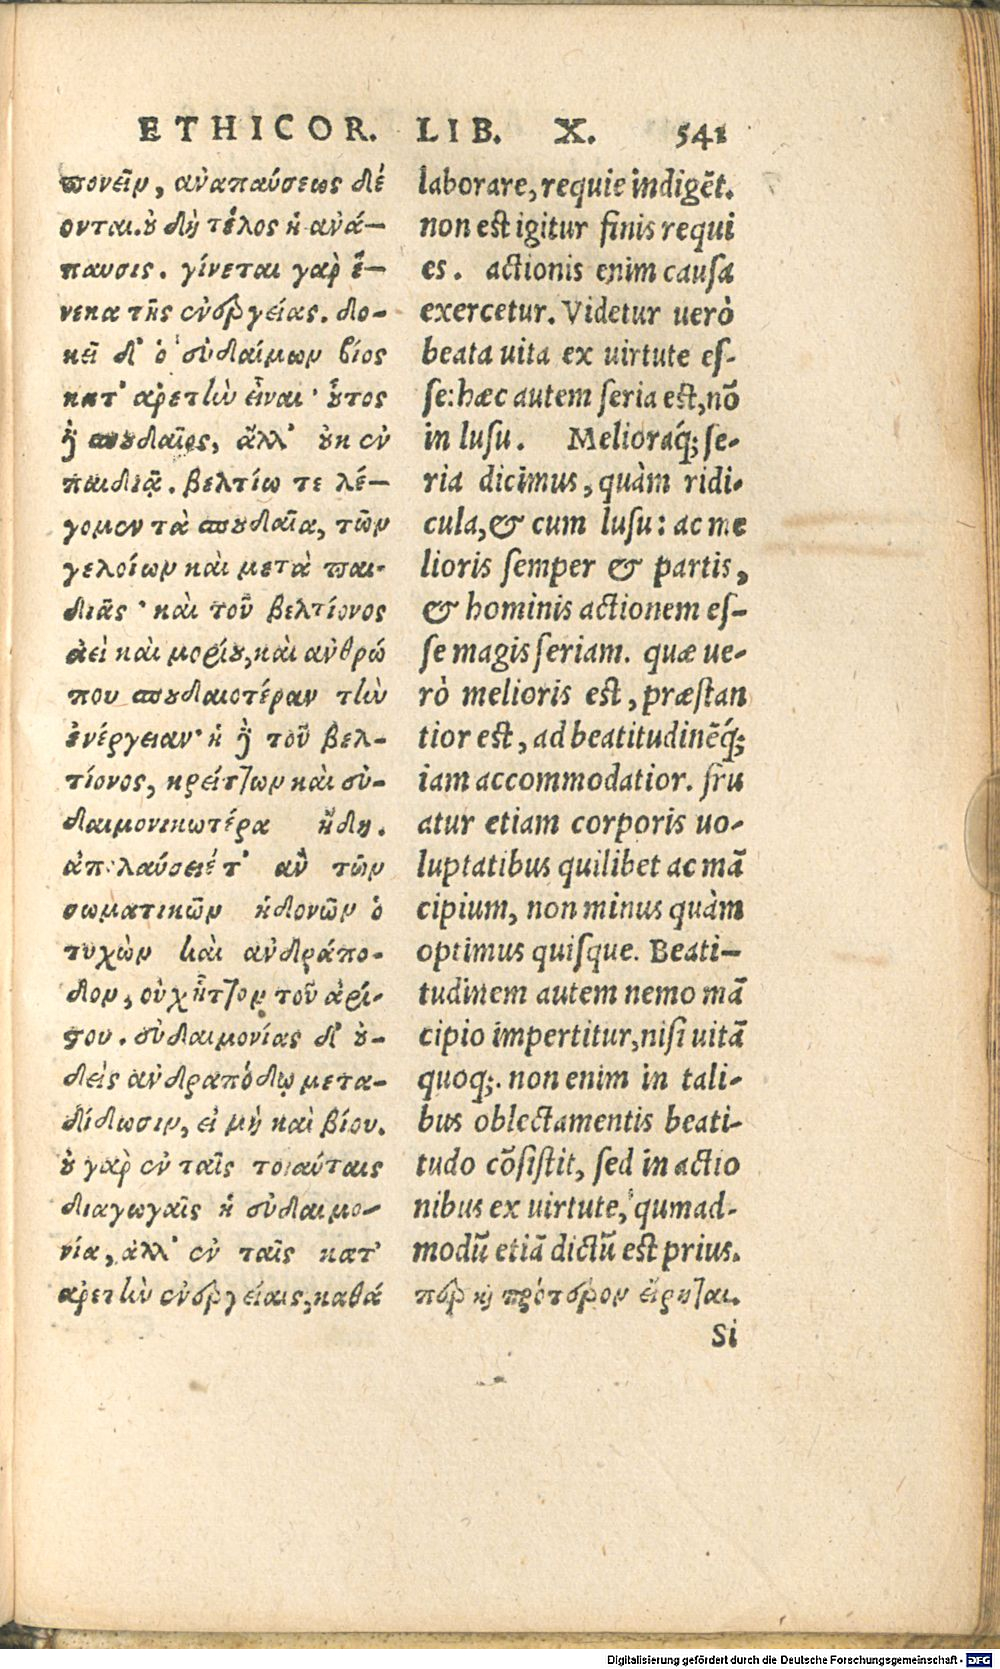 ETHICOR. LIB. X. 541
πονεῖν, ἀναπαύσεως δέ
ονται. οὐ δὴ τέλος ἡ ἀνά-
παυσις. γίνεται γὰρ ἕ-
νεκα τῆς ἐνεργείας. δο-
κεῖ δ' ὁ εὐδαίμων βίος
κατ' ἀρετὴν εἶναι· οὗτος
δὲ σπουδαῖος, ἀλλ' οὐκ ἐν
παιδιᾷ. βελτίω τε λέ-
γομεν τὰ σπουδαῖα, τῶν
γελοίων καὶ μετὰ παι-
διᾶς· καὶ τοῦ βελτίονος
ἀεὶ καὶ μορίου, καὶ ἀνθρώ
που σπουδαιοτέραν τὴν
ἐνέργειαν· ἡ δὲ τοῦ βελ-
τίονος, κρείττων καὶ εὐ-
δαιμονικωτέρα ἤδη.
ἀπολαύσειέ τ' ἂν τῶν
σωματικῶν ἡδονῶν ὁ
τυχὼν καὶ ἀνδράπο-
δον, οὐχ ἧττον τοῦ ἀρί-
στου. εὐδαιμονίας δ' οὐ-
δεὶς ἀνδραπόδῳ μετα-
δίδωσιν, εἰ μὴ καὶ βίου.
οὐ γὰρ ἐν ταῖς τοιαύταις
διαγωγαῖς ἡ εὐδαιμο-
νία, ἀλλ' ἐν ταῖς κατ'
ἀρετὴν ἐνεργείαις, καθά
περ καὶ πρότερον εἴρηται.
laborare, requie indigēt.
non est igitur finis requi
es. actionis enim causa
exercetur. Videtur uerò
beata uita ex uirtute es-
se: hæc autem seria est, nō
in lusu. Melioraq́; se-
ria dicimus, quàm ridi-
cula, & cum lusu: ac me
lioris semper & partis,
& hominis actionem es-
se magis seriam. quæ ue-
rò melioris est, præstan
tior est, ad beatitudinēq́;
iam accommodatior. fru
atur etiam corporis uo-
luptatibus quilibet ac mā
cipium, non minus quàm
optimus quisque. Beati-
tudinem autem nemo mā
cipio impertitur, nisi uitā
quoq;. non enim in tali-
bus oblectamentis beati-
tudo cōsistit, sed in actio
nibus ex uirtute, qumad-
modū etiā dictū est prius.
Si
Digitalisierung gefördert durch die Deutsche Forschungsgemeinschaft - DFG